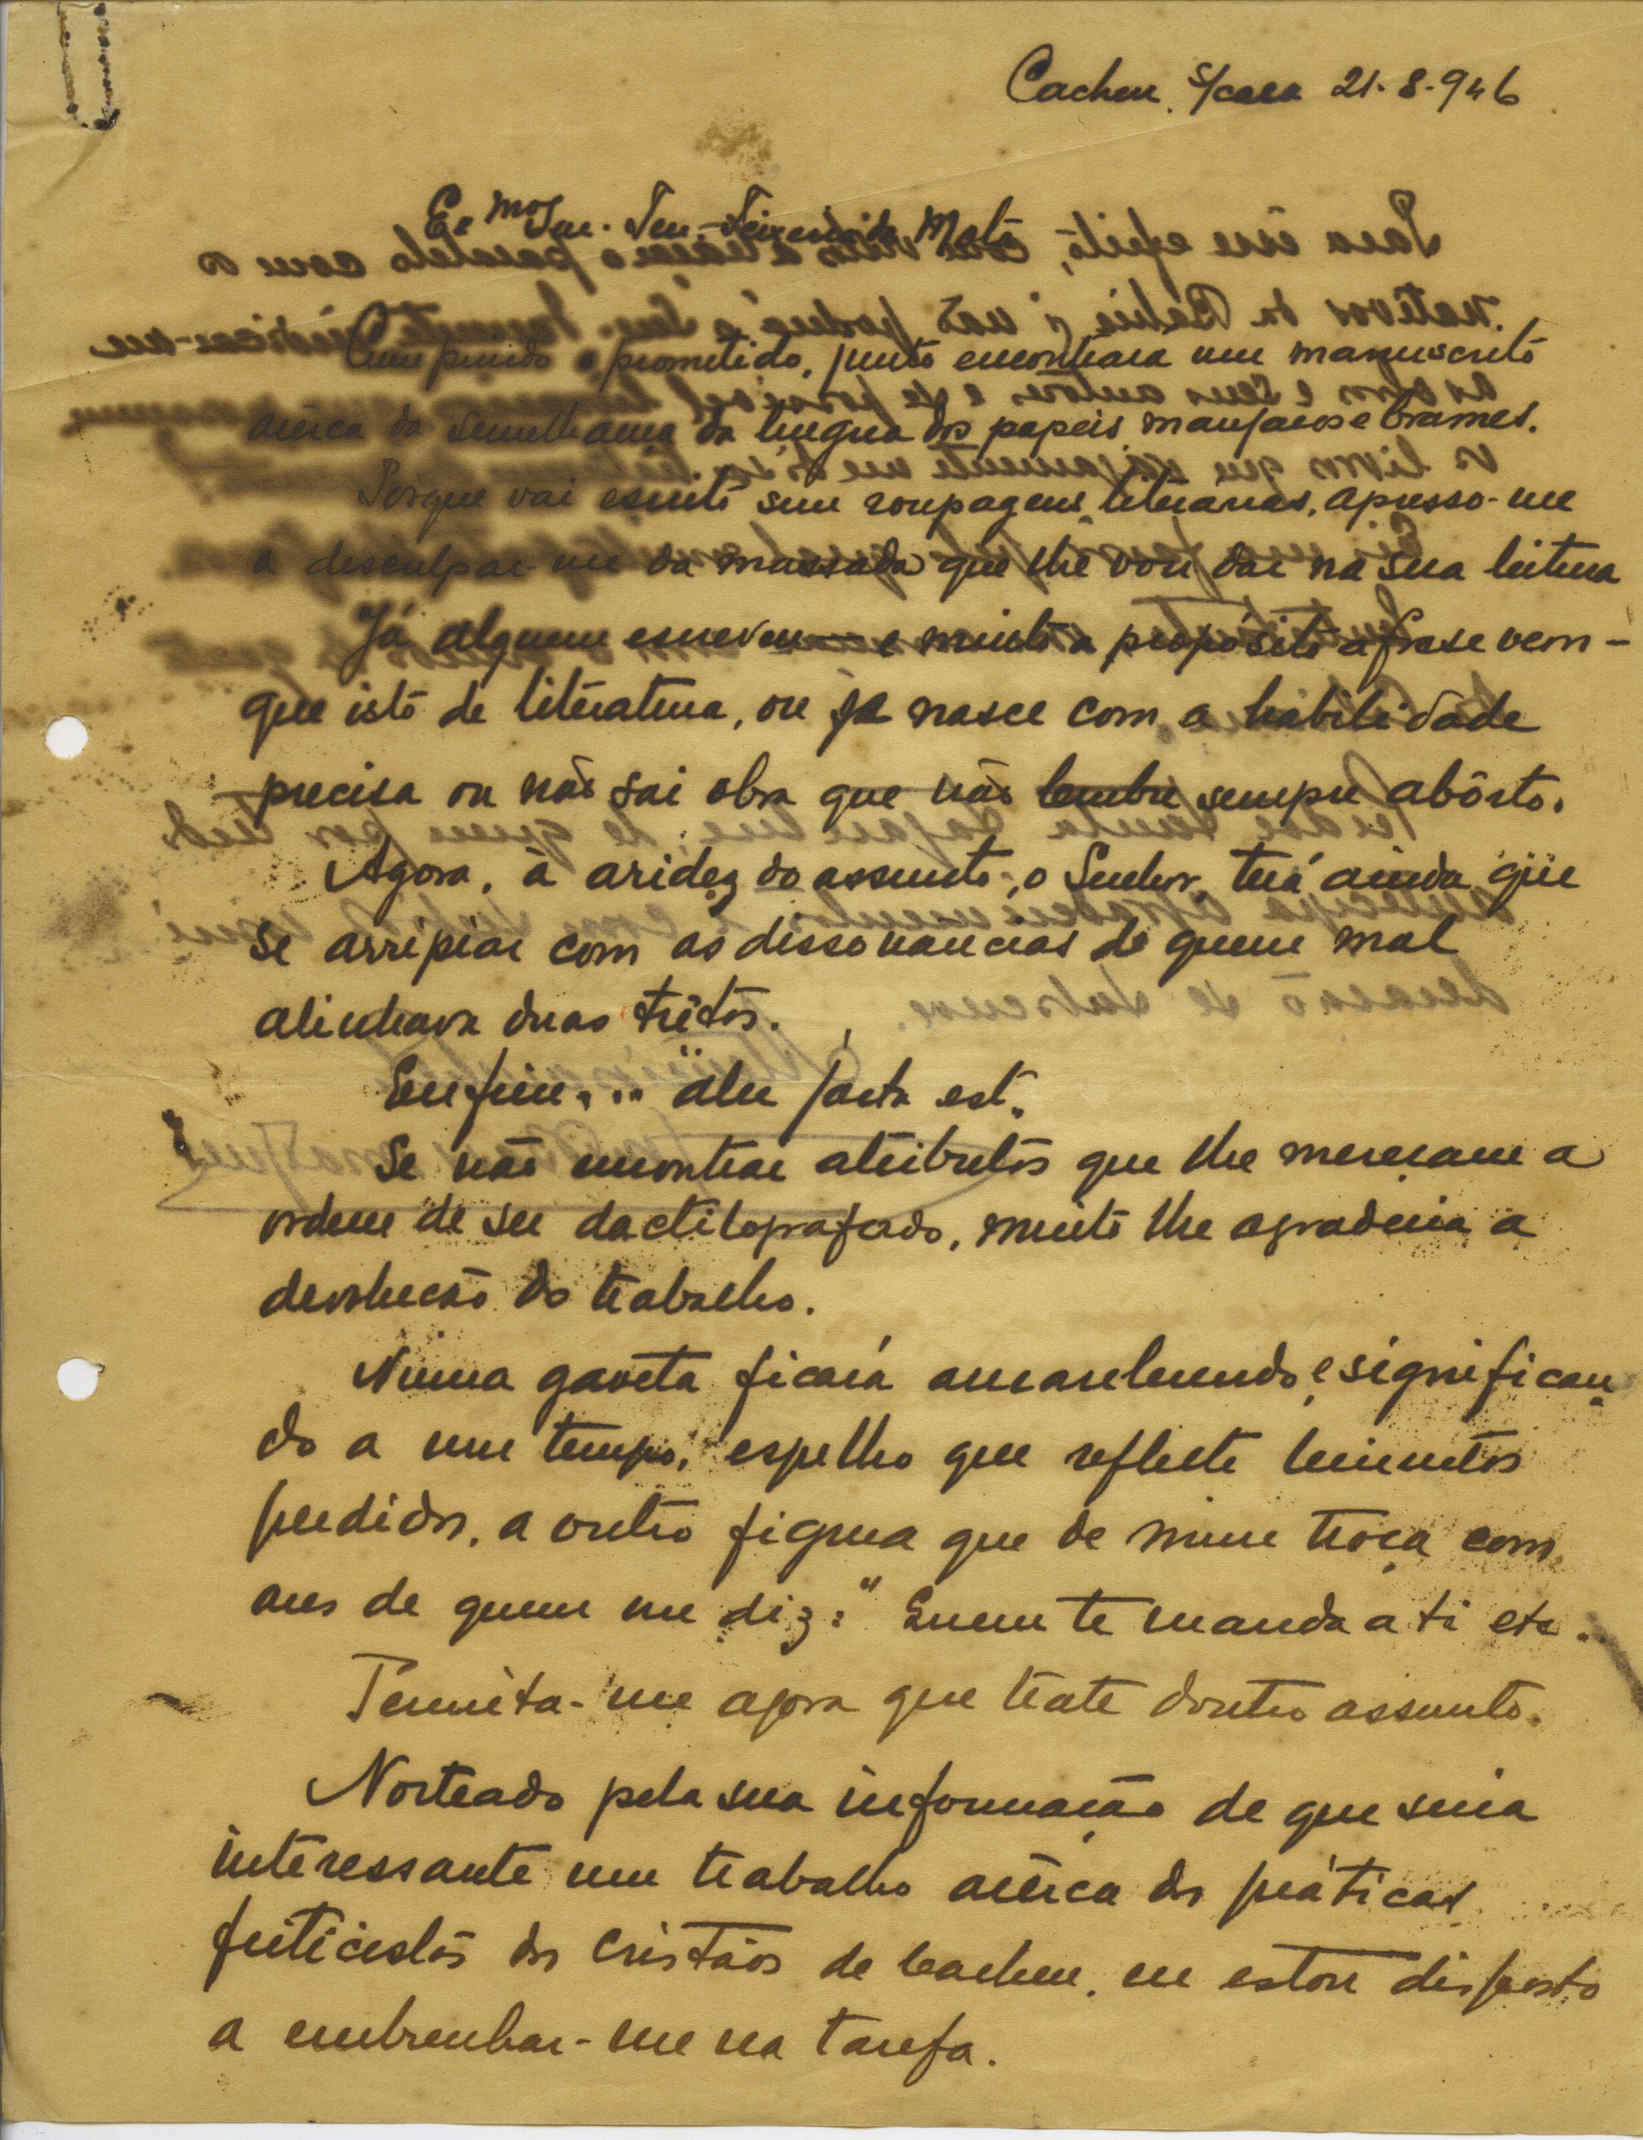 Cacheu, s/casa 21-8-946
Exmo Snr. Ten. Teixeira da Mota
Cumprindo o prometido, junto encontrará um manuscrito
acêrca da semelhança da lingua dos papeis, manjacos e brames.
Porque vai escrito sem roupagens literárias, apresso-me
a desculpar-me da massada que lhe vou dar na sua leitura
Já alguem escreveu — e muito a propósito a frase vem -
que isto de literatura, ou se nasce com a habilidade
precisa ou não sai obra que não lembre sempre abôrto.
Agora, à aridez do assunto, o Senhor terá ainda que
se arripiar com as dissonancias de quem mal
alinhava duas trêtas.
Enfim... alea jacta est.
Se não encontrar atributos que lhe mereçam a
ordem de ser dactilografado, muito lhe agradecia a
devolução do trabalho.
Numa gaveta ficará amarelecendo e significan
do a um tempo, espelho que reflecte minutos
perdidos, a outro figura que de mim troça com
ares de quem me diz: "Quem te manda a ti etc.
Permita-me agora que trate doutro assunto.
Norteado pela sua informação de que seria
interessante um trabalho acêrca das práticas
feiticistas dos cristãos de Cacheu, eu estou disposto
a embrenhar-me na tarefa.